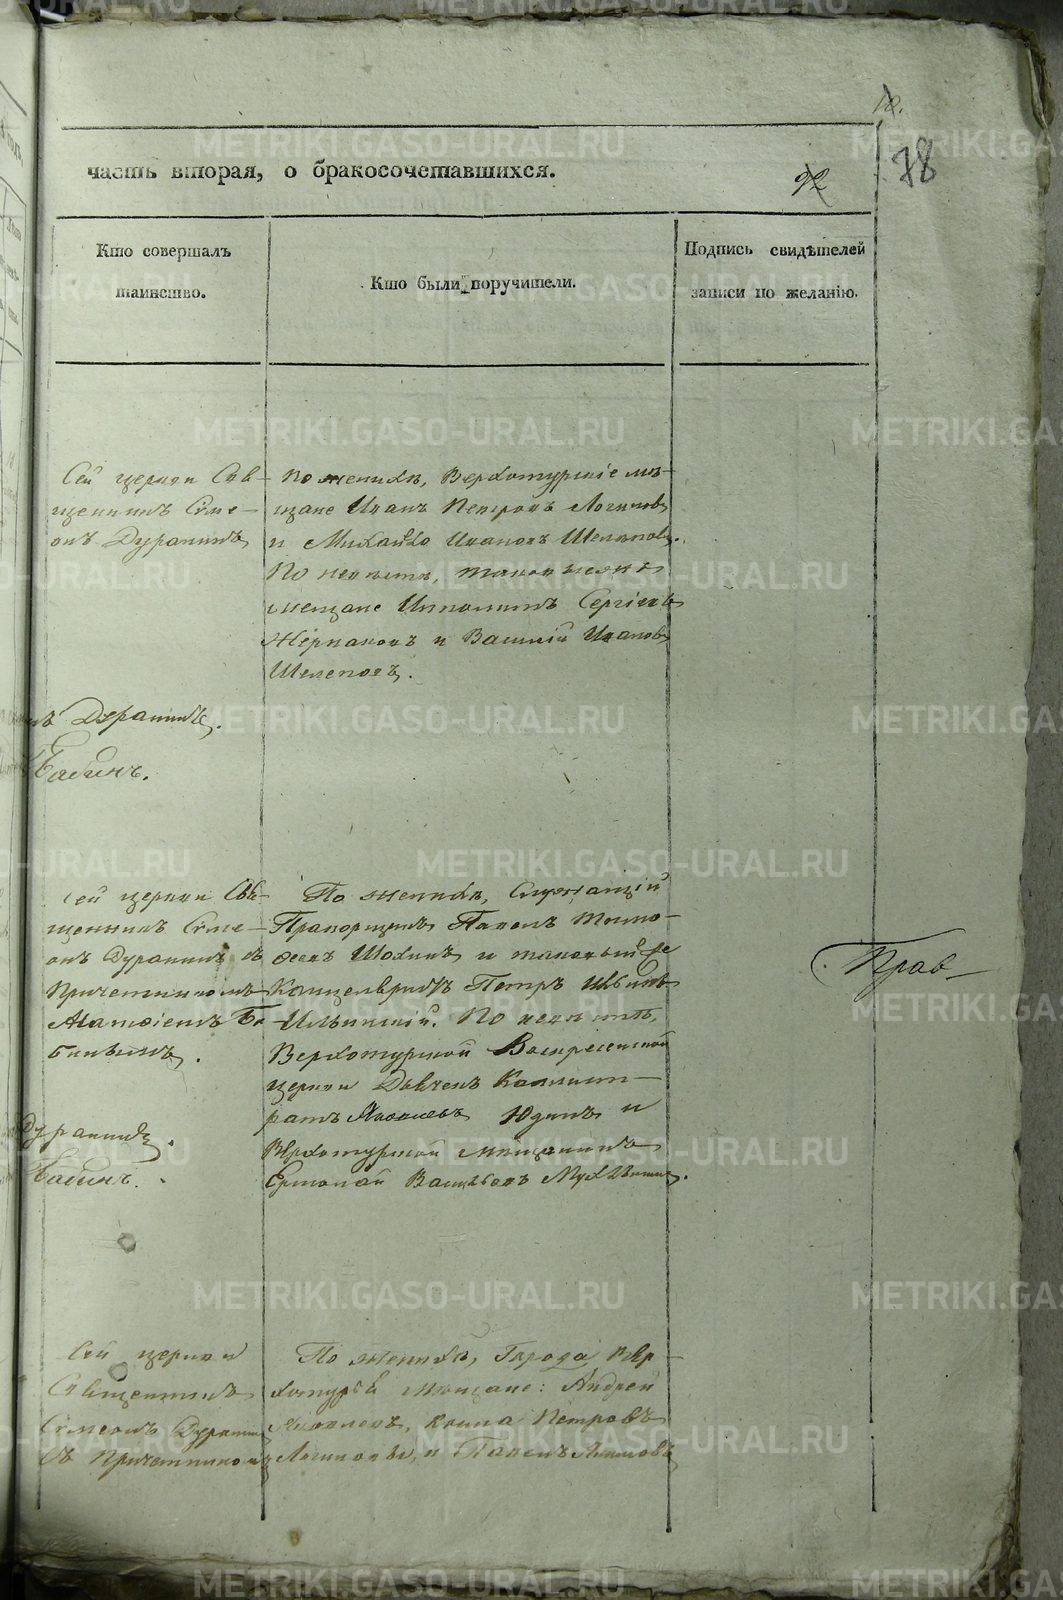 12.
часть вторая, о бракосочетавшихся.
92
78
Кто совершалъ
таинство.
Кто были поручители.
Подпись свидѣтелей
записи по желанію.
Сей церкви Свя-
щенникъ Симе-
онъ Дуранинъ
По женихѣ, Верхотурскіе мѣ-
щане Иванъ Петровъ Логиновъ
и Михайло Ивановъ Шелеповъ.
По невѣстѣ, таковыеже
мещане Ипполитъ Сергіевъ
Жернаковъ и Василій Ивановъ
Шелеповъ.
Дуранинъ.
Бабинъ.
сей церкви Свя-
щенникъ Симе-
онъ Дуранинъ съ
Причетникомъ
Матѳіемъ Ба-
бинымъ.
По женихѣ, Служащій
Прапорщикъ Павелъ Тимо-
ѳеевъ Шохинъ и таковый же
Канцеляристъ Петръ
Ильинскій. По невѣстѣ,
Верхотурской Воскресенской
церкви Дьячекъ Каллист-
ратъ Яковлевъ Юдинъ и
Верхотурской мѣщанинъ
Ермолай Васильевъ
Прав-
Дуранинъ.
Бабинъ.
Сей церкви
Священникъ
Симеонъ Дуранинъ
съ Причетникомъ
По женихѣ, Города Вер-
хотурья мѣщане: Андрей
Яковлевъ, Петровъ
Логиновы, и Павелъ
METRIKI.GASO-URAL.RU